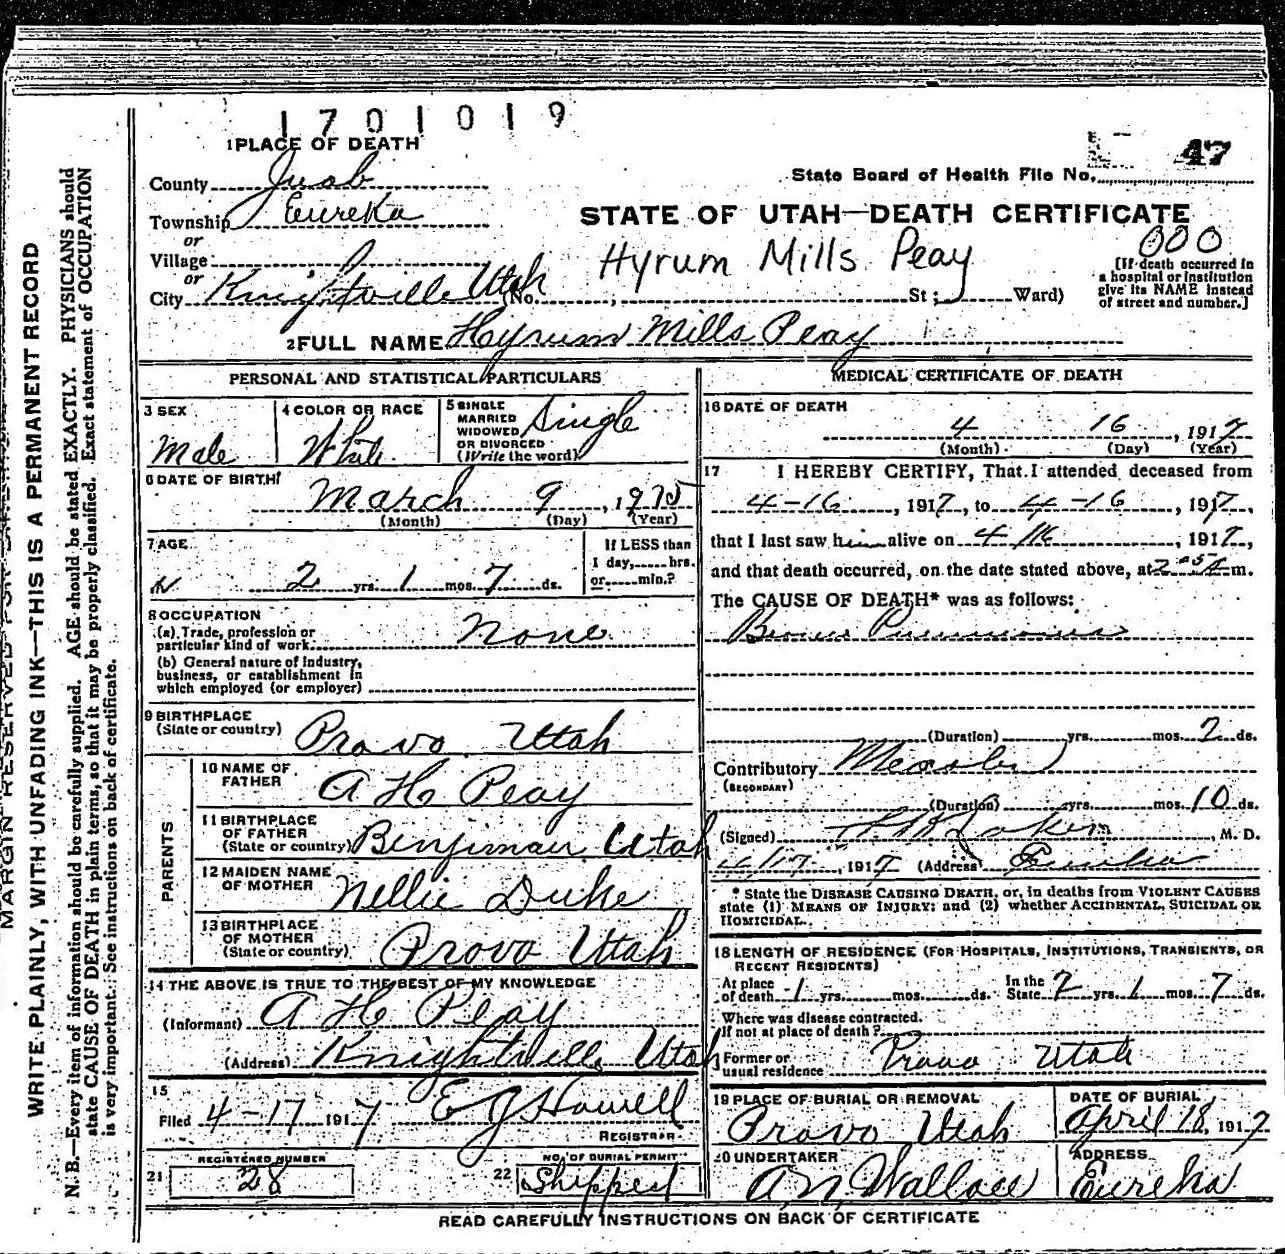 1701019
1 PLACE OF DEATH
State Board of Health File No. 47
County Juab
Township Eureka
STATE OF UTAH—DEATH CERTIFICATE
or
Village
Hyrum Mills Peay
000
or
City Knightville Utah (No. St; Ward)
[If death occurred in
a hospital or institution
give its NAME instead
of street and number.]
2 FULL NAME Hyrum Mills Peay
PERSONAL AND STATISTICAL PARTICULARS
3 SEX
Male
4 COLOR OR RACE
White
5 SINGLE
MARRIED
WIDOWED
OR DIVORCED
(Write the word)
Single
6 DATE OF BIRTH
March 9, 1915
(Month) (Day) (Year)
7 AGE
2 yrs. 1 mos. 7 ds.
If LESS than
1 day, hrs.
or min.?
8 OCCUPATION
(a) Trade, profession or
particular kind of work None
(b) General nature of Industry,
business, or establishment in
which employed (or employer)
9 BIRTHPLACE
(State or country) Provo Utah
PARENTS
10 NAME OF
FATHER A H Peay
11 BIRTHPLACE
OF FATHER
(State or country) Benjiman Utah
12 MAIDEN NAME
OF MOTHER Nellie Duke
13 BIRTHPLACE
OF MOTHER
(State or country) Provo Utah
14 THE ABOVE IS TRUE TO THE BEST OF MY KNOWLEDGE
(Informant) A H Peay
(Address) Knightville Utah
15
Filed 4-17 1917 E J Howell
REGISTRAR
REGISTERED NUMBER
21 28
NO. OF BURIAL PERMIT
22 Shipped
MEDICAL CERTIFICATE OF DEATH
16 DATE OF DEATH
4 16, 1917
(Month) (Day) (Year)
17 I HEREBY CERTIFY, That I attended deceased from
4-16, 1917, to 4-16, 1917,
that I last saw him alive on 4/16, 1917,
and that death occurred, on the date stated above, at m.
The CAUSE OF DEATH* was as follows:
Pneumonia
(Duration) yrs. mos. 2 ds.
Contributory Measles
(SECONDARY)
(Duration) yrs. mos. 10 ds.
(Signed) M. D.
4/17, 1917 (Address) Eureka
* State the DISEASE CAUSING DEATH, or, in deaths from VIOLENT CAUSES
state (1) MEANS OF INJURY; and (2) whether ACCIDENTAL, SUICIDAL OR
HOMICIDAL.
18 LENGTH OF RESIDENCE (FOR HOSPITALS, INSTITUTIONS, TRANSIENTS, OR
RECENT RESIDENTS)
At place
of death 1 yrs. mos. ds.
In the
State 2 yrs. 1 mos. 7 ds.
Where was disease contracted.
If not at place of death?
Former or
usual residence Provo Utah
19 PLACE OF BURIAL OR REMOVAL
Provo Utah
DATE OF BURIAL
April 18, 1917
20 UNDERTAKER
A N Wallace
ADDRESS
Eureka
READ CAREFULLY INSTRUCTIONS ON BACK OF CERTIFICATE
MARGIN RESERVED FOR BINDING
WRITE PLAINLY, WITH UNFADING INK—THIS IS A PERMANENT RECORD
N. B.—Every item of information should be carefully supplied. AGE should be stated EXACTLY. PHYSICIANS should
state CAUSE OF DEATH in plain terms, so that it may be properly classified. Exact statement of OCCUPATION
is very important. See instructions on back of certificate.